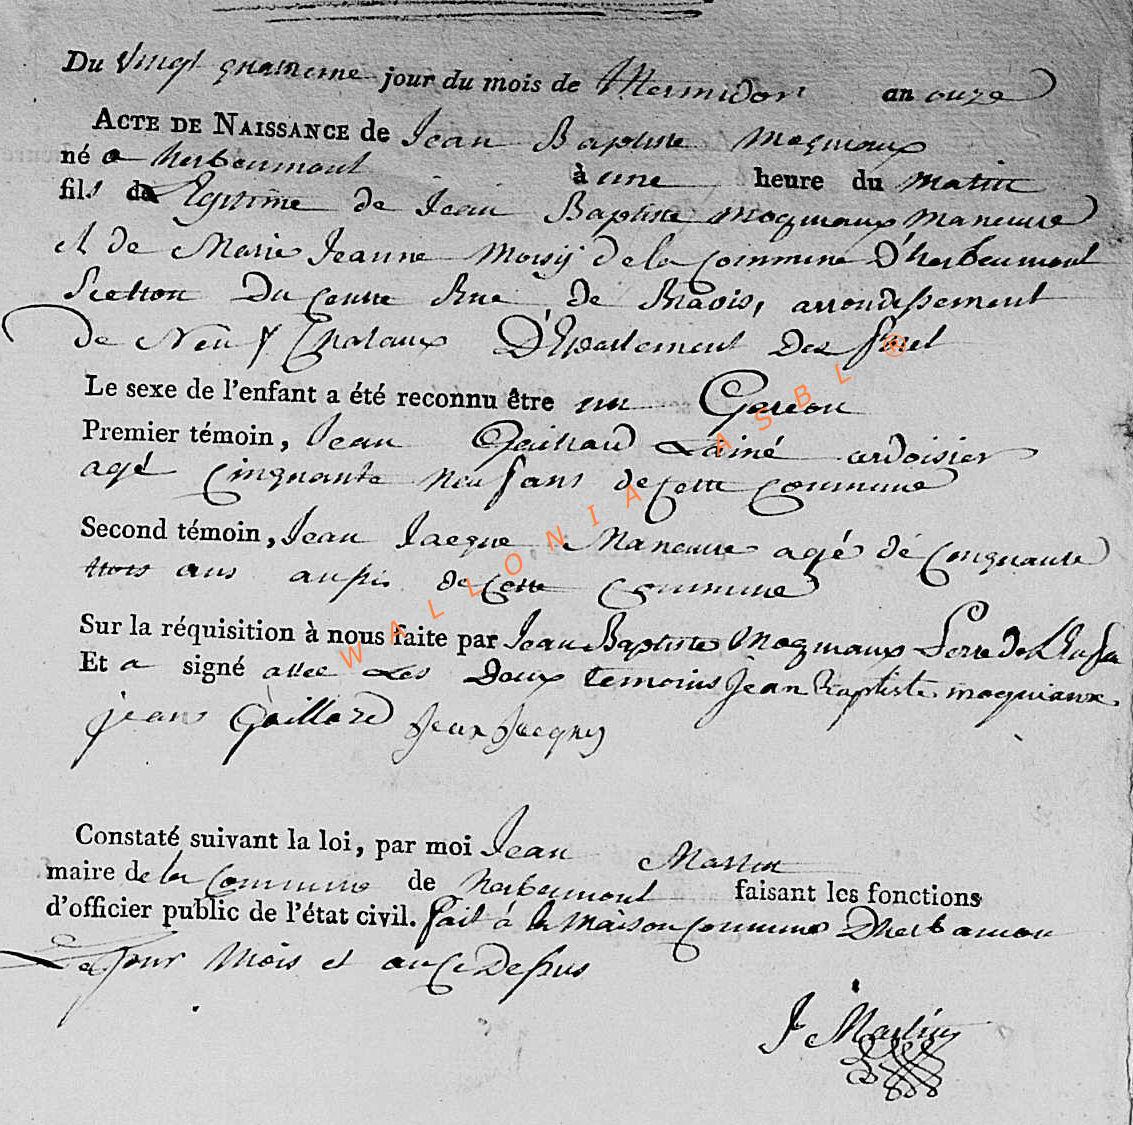 Du Vingt quatrieme jour du mois de Thermidor an onze
ACTE DE NAISSANCE de Jean Baptiste Moquiaux
né a herbeumont à une heure du matin
fils de Legitime de Jean Baptiste moquiaux maneuvre
et de Marie Jeanne Morsij de la Commune D'herbeumont
Section Du Centre Rue de arrondissement
de Neuf Chataux D'Epartement Des foret
Le sexe de l'enfant a été reconnu être un Garcon
Premier témoin, Jean Gaillard Lainé ardoisier
agé Cinquante neuf ans de Cette Commune
Second témoin, Jean Jacque Maneuvre agé de Cinquante
trois ans aussi de Cette Commune
Sur la réquisition à nous faite par Jean Baptiste Moquiaux Perre de L'Enfan
Et a signé avec Les Deux temoins Jean Baptiste moquiaux
jean Gaillard Jean Jacques
Constaté suivant la loi, par moi Jean Martin
maire de la Commune de herbeumont faisant les fonctions
d'officier public de l'état civil. fait á la Maison Commune Dherbamon
Le Jour Mois et an Ci Dessus
J Martin
WALLONIA ASBL ®